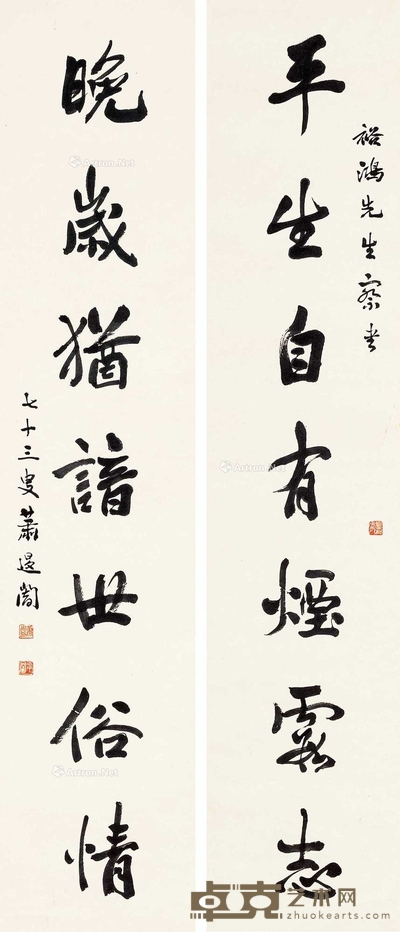 裕鴻先生察書
平生自有煙霞志
晚歲猶諳世俗情
七十三叟蕭退闇
Artron.Net
卓克艺术网
zhuokearts.com